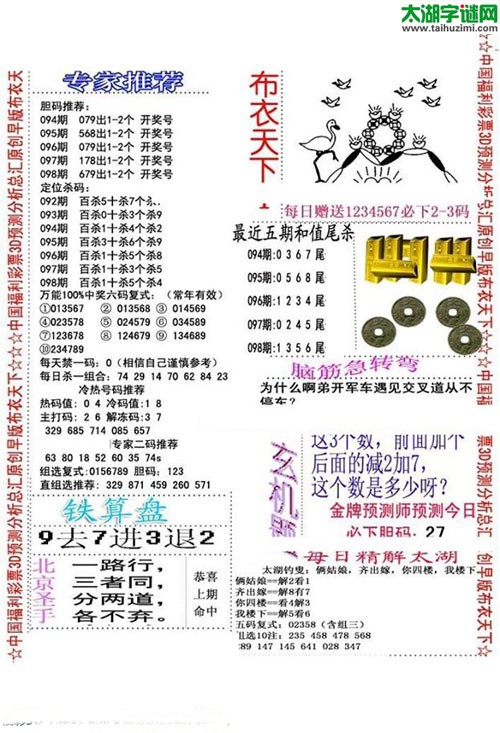 太湖字谜网
www.taihuzimi.com
☆中国福利彩票3D预测分析总汇原创早版布衣天下☆☆☆中国福利彩票3D预测分析总汇原创早版布衣天
专家推荐
胆码推荐:
094期 079出1-2个 开奖号
095期 568出1-2个 开奖号
096期 079出1-2个 开奖号
097期 178出1-2个 开奖号
098期 679出1-2个 开奖号
定位杀码:
092期 百杀5十杀7个
093期 百杀0十杀3个杀9
094期 百杀2十杀4个杀9
095期 百杀1十杀3个杀9
096期 百杀1十杀5个杀9
097期 百杀1十杀5个杀4
098期 百杀1十杀5个杀4
万能100%中奖六码复式: (常年有效)
①013567 ② 013568 ③ 014569
④023578 ⑤ 024579 ⑥ 034689
⑦123678 ⑧ 124679 ⑨ 134589
⑩234789
每天禁一码: 0 (相信自己谨慎参考)
每日杀一组合: 74 29 14 70 62 84 23
冷热号码推荐
热码值: 0 4 冷码值: 1 8
主打码: 2 6 解冻码: 3 7
329 685 714 085 657
专家二码推荐
63 80 18 52 60 35 74s
组选复式: 0156789 胆码: 123
直组选推荐: 329 871 459 260 571
铁算盘
9去7进3退2
北京圣手
一路行,
三者同,
分两道,
各不弃。
恭喜
上期
命中
布衣天下
每日赠送1234567必下2-3码
最近五期和值尾杀
094期:0 3 6 7 尾
095期:0 5 6 8 尾
096期:1 2 3 4 尾
097期:0 2 4 5 尾
098期:1 3 5 6 尾
脑筋急转弯
为什么啊弟开军车遇见交叉道从不
停车?
玄机
这3个数,前面加个
后面的减2加7,
这个数是多少呀?
金牌预测师预测今日
必下胆码. 27
每日精解太湖
太湖钓叟: 俩姑娘, 齐出嫁, 你四楼, 我楼下
俩姑娘==解2看1
齐出嫁==解8有7
你四楼==看4解3
我楼下==解6看7
五码复式: 02358 (含组三)
组选10注: 235 458 478 568
289 147 145 641 028 347
☆☆中国福利彩票3D预测分析总汇原创早版布衣天下☆☆☆中国福
票3D预测分析总汇 原创早版布衣天下☆